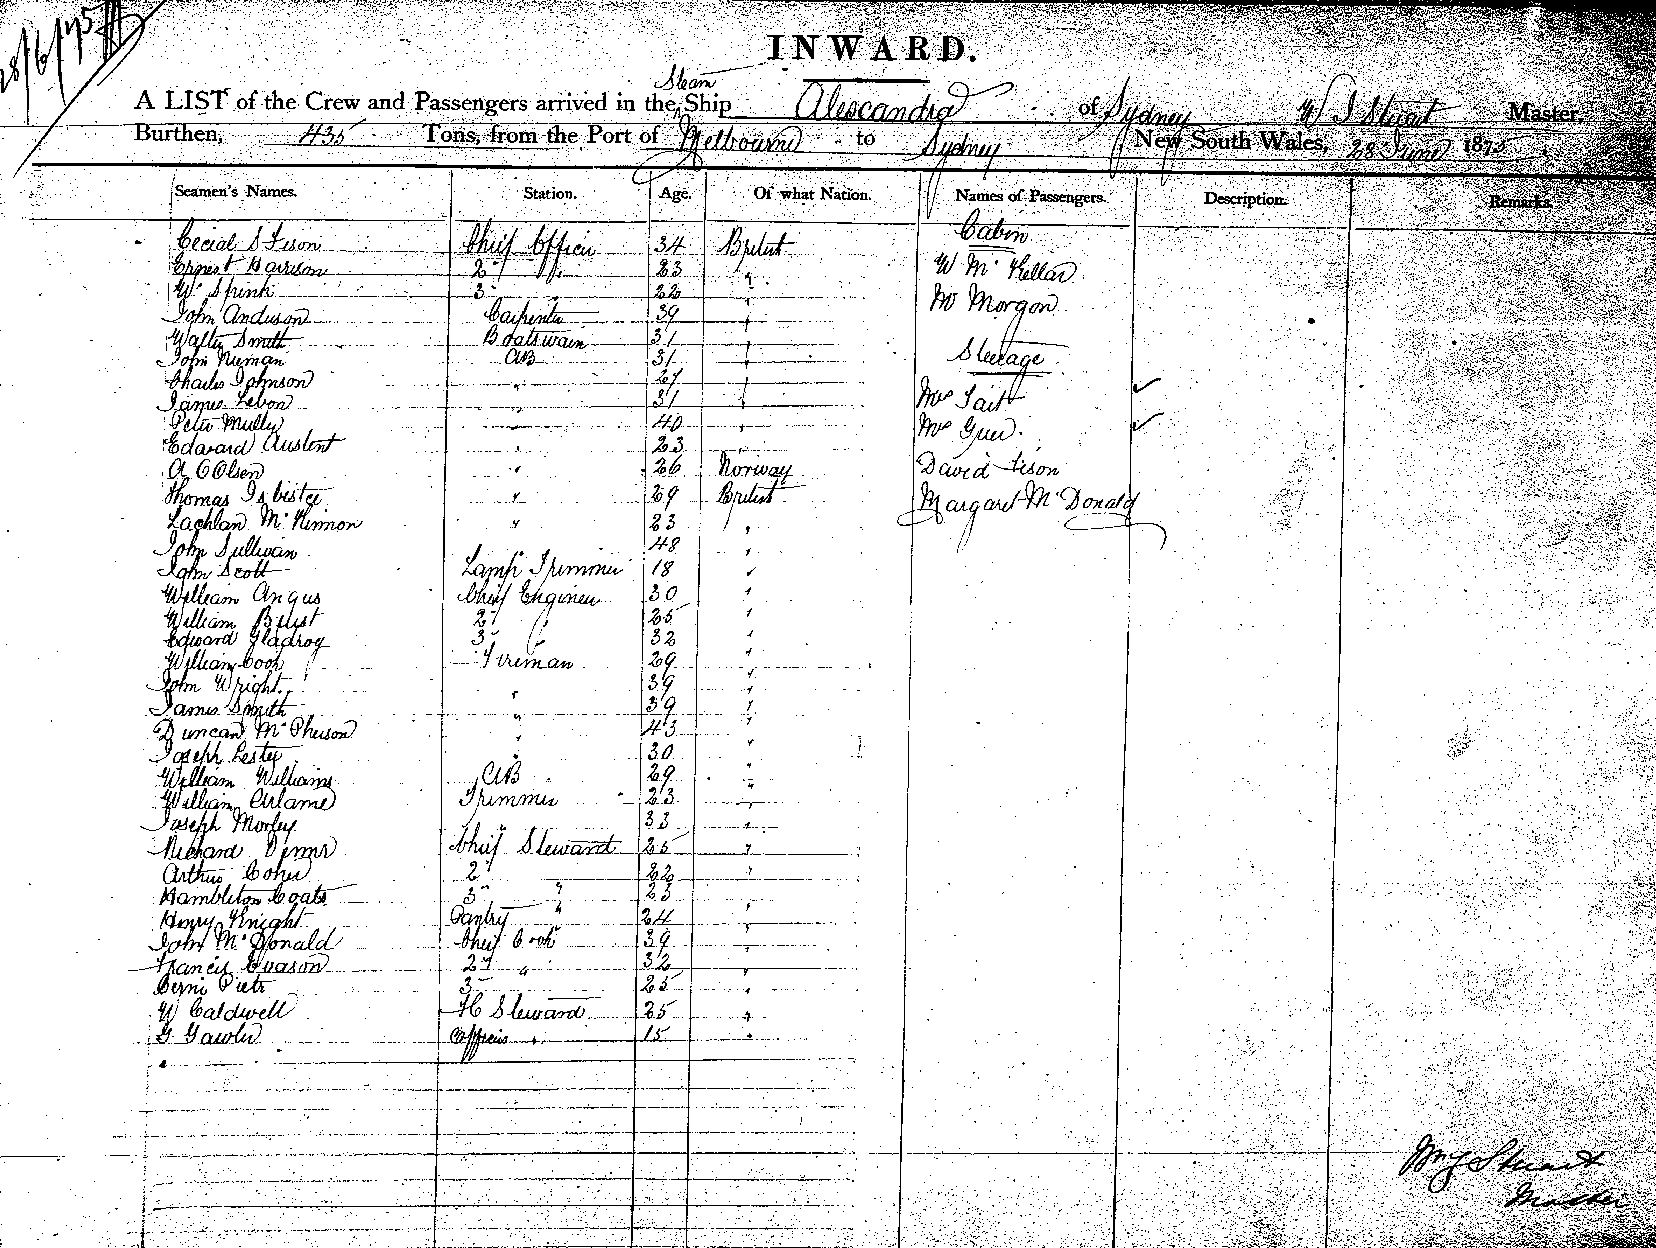 28/6/75
INWARD.
Steam
A LIST of the Crew and Passengers arrived in the Ship Alexandra of Sydney W J Stuart Master
Burthen, 435 Tons, from the Port of Melbourne to Sydney New South Wales, 28 June 1875
Seamen's Names. Station. Age. Of what Nation. Names of Passengers. Description. Remarks.
Cabin
Cecial S Tison Chief Officer 34 British
Ernest Harrison 2 " 23 " W McKellar
W Spink 3 22 "
John Anderson Carpenter 39 " Mr Morgon
Walter Smith Boatswain 31 "
John Numan AB 31 " Steerage
Charles Johnson " 27 "
James Lebon " 31 " Mrs Tait ✓
Peter Mully " 40 "
Edward Austent " 23 Mrs Guer. ✓
A C Olsen " 26 Norway David Tison
Thomas Isbister " 29 British Margaret McDonald
Lachlan McKinnon " 23 "
John Sullivan 48 "
John Scott Lamp Trimmer 18 "
William Angus Chief Engineer 30 "
William 2 " 25 "
Edward 3 " 32 "
William Cook Fireman 29 "
John Wright " 39 "
James Smith " 39 "
Duncan McPherson " 43 "
Joseph Lester " 30 "
William Williams AB 29 "
William Trimmer 23 "
Joseph Morley " 33 "
Richard Chief Steward 25 "
Arthur Coher 2 " 22 "
Hambleton Coats 3 " 23 "
Henry Knight Pantry " 24 "
John McDonald Chief Cook 39 "
Francis Evason 2 " 32 "
Pietr 3 25 "
W Caldwell FC Steward 25 "
G Gawler Officers " 15 "
Wm J Stuart
Master